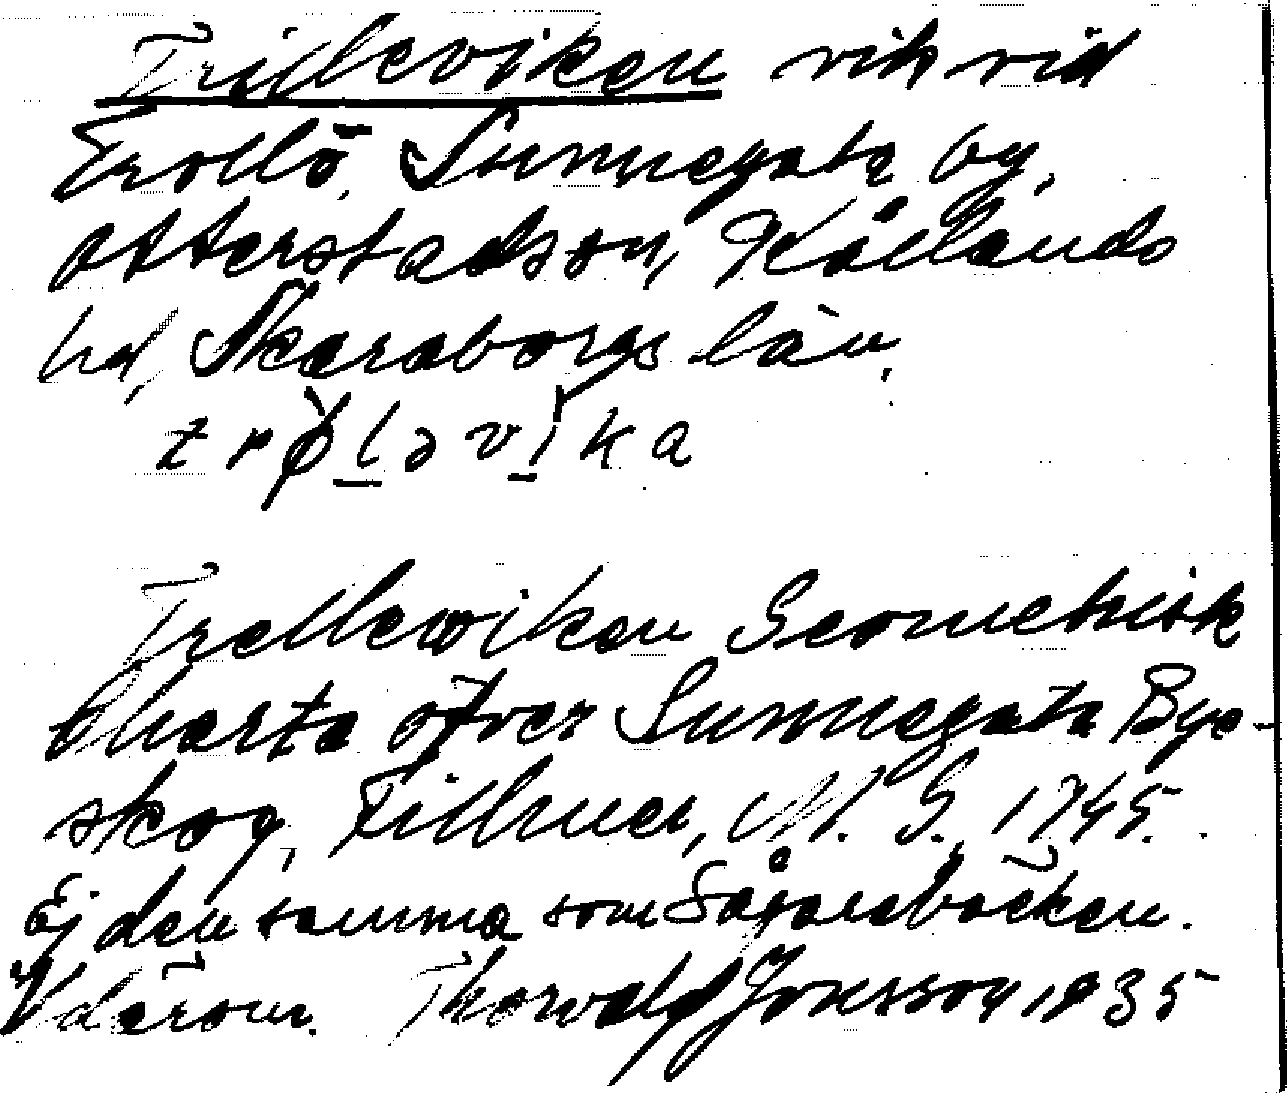 Trilleviken vik vid
Trollö, Sunnegata by,
Otterstadson, Kållands
hd, Skaraborgs län.
trø̀lǝvika
Trellewiken Geometrisk
Charta öfver Sunnegata Bye-
skog, Fillmer, M. G. 1745.
Ej den samma som Såganebäcken.
därom. Thorvald Jonsson 1935